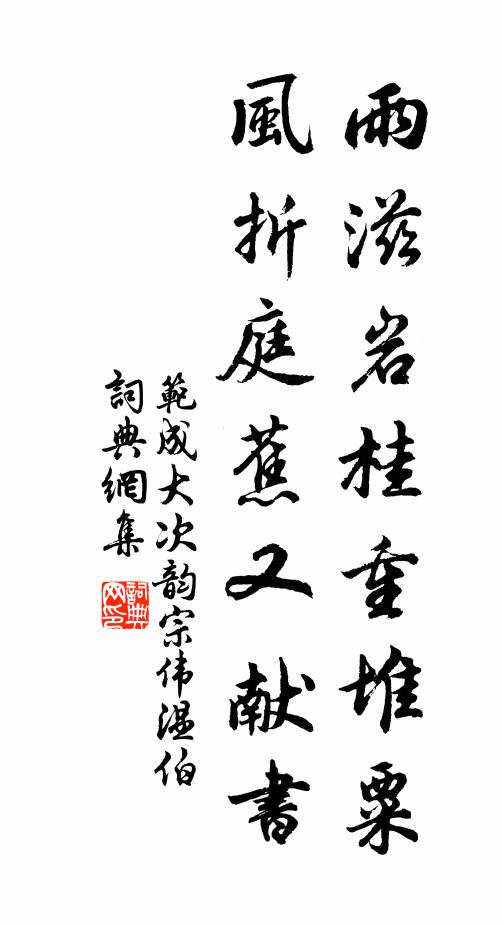 雨滋岩桂重堆粟
風折庭蕉又献書
範成大次韵宗伟温伯
詞典網集
詞典
网印